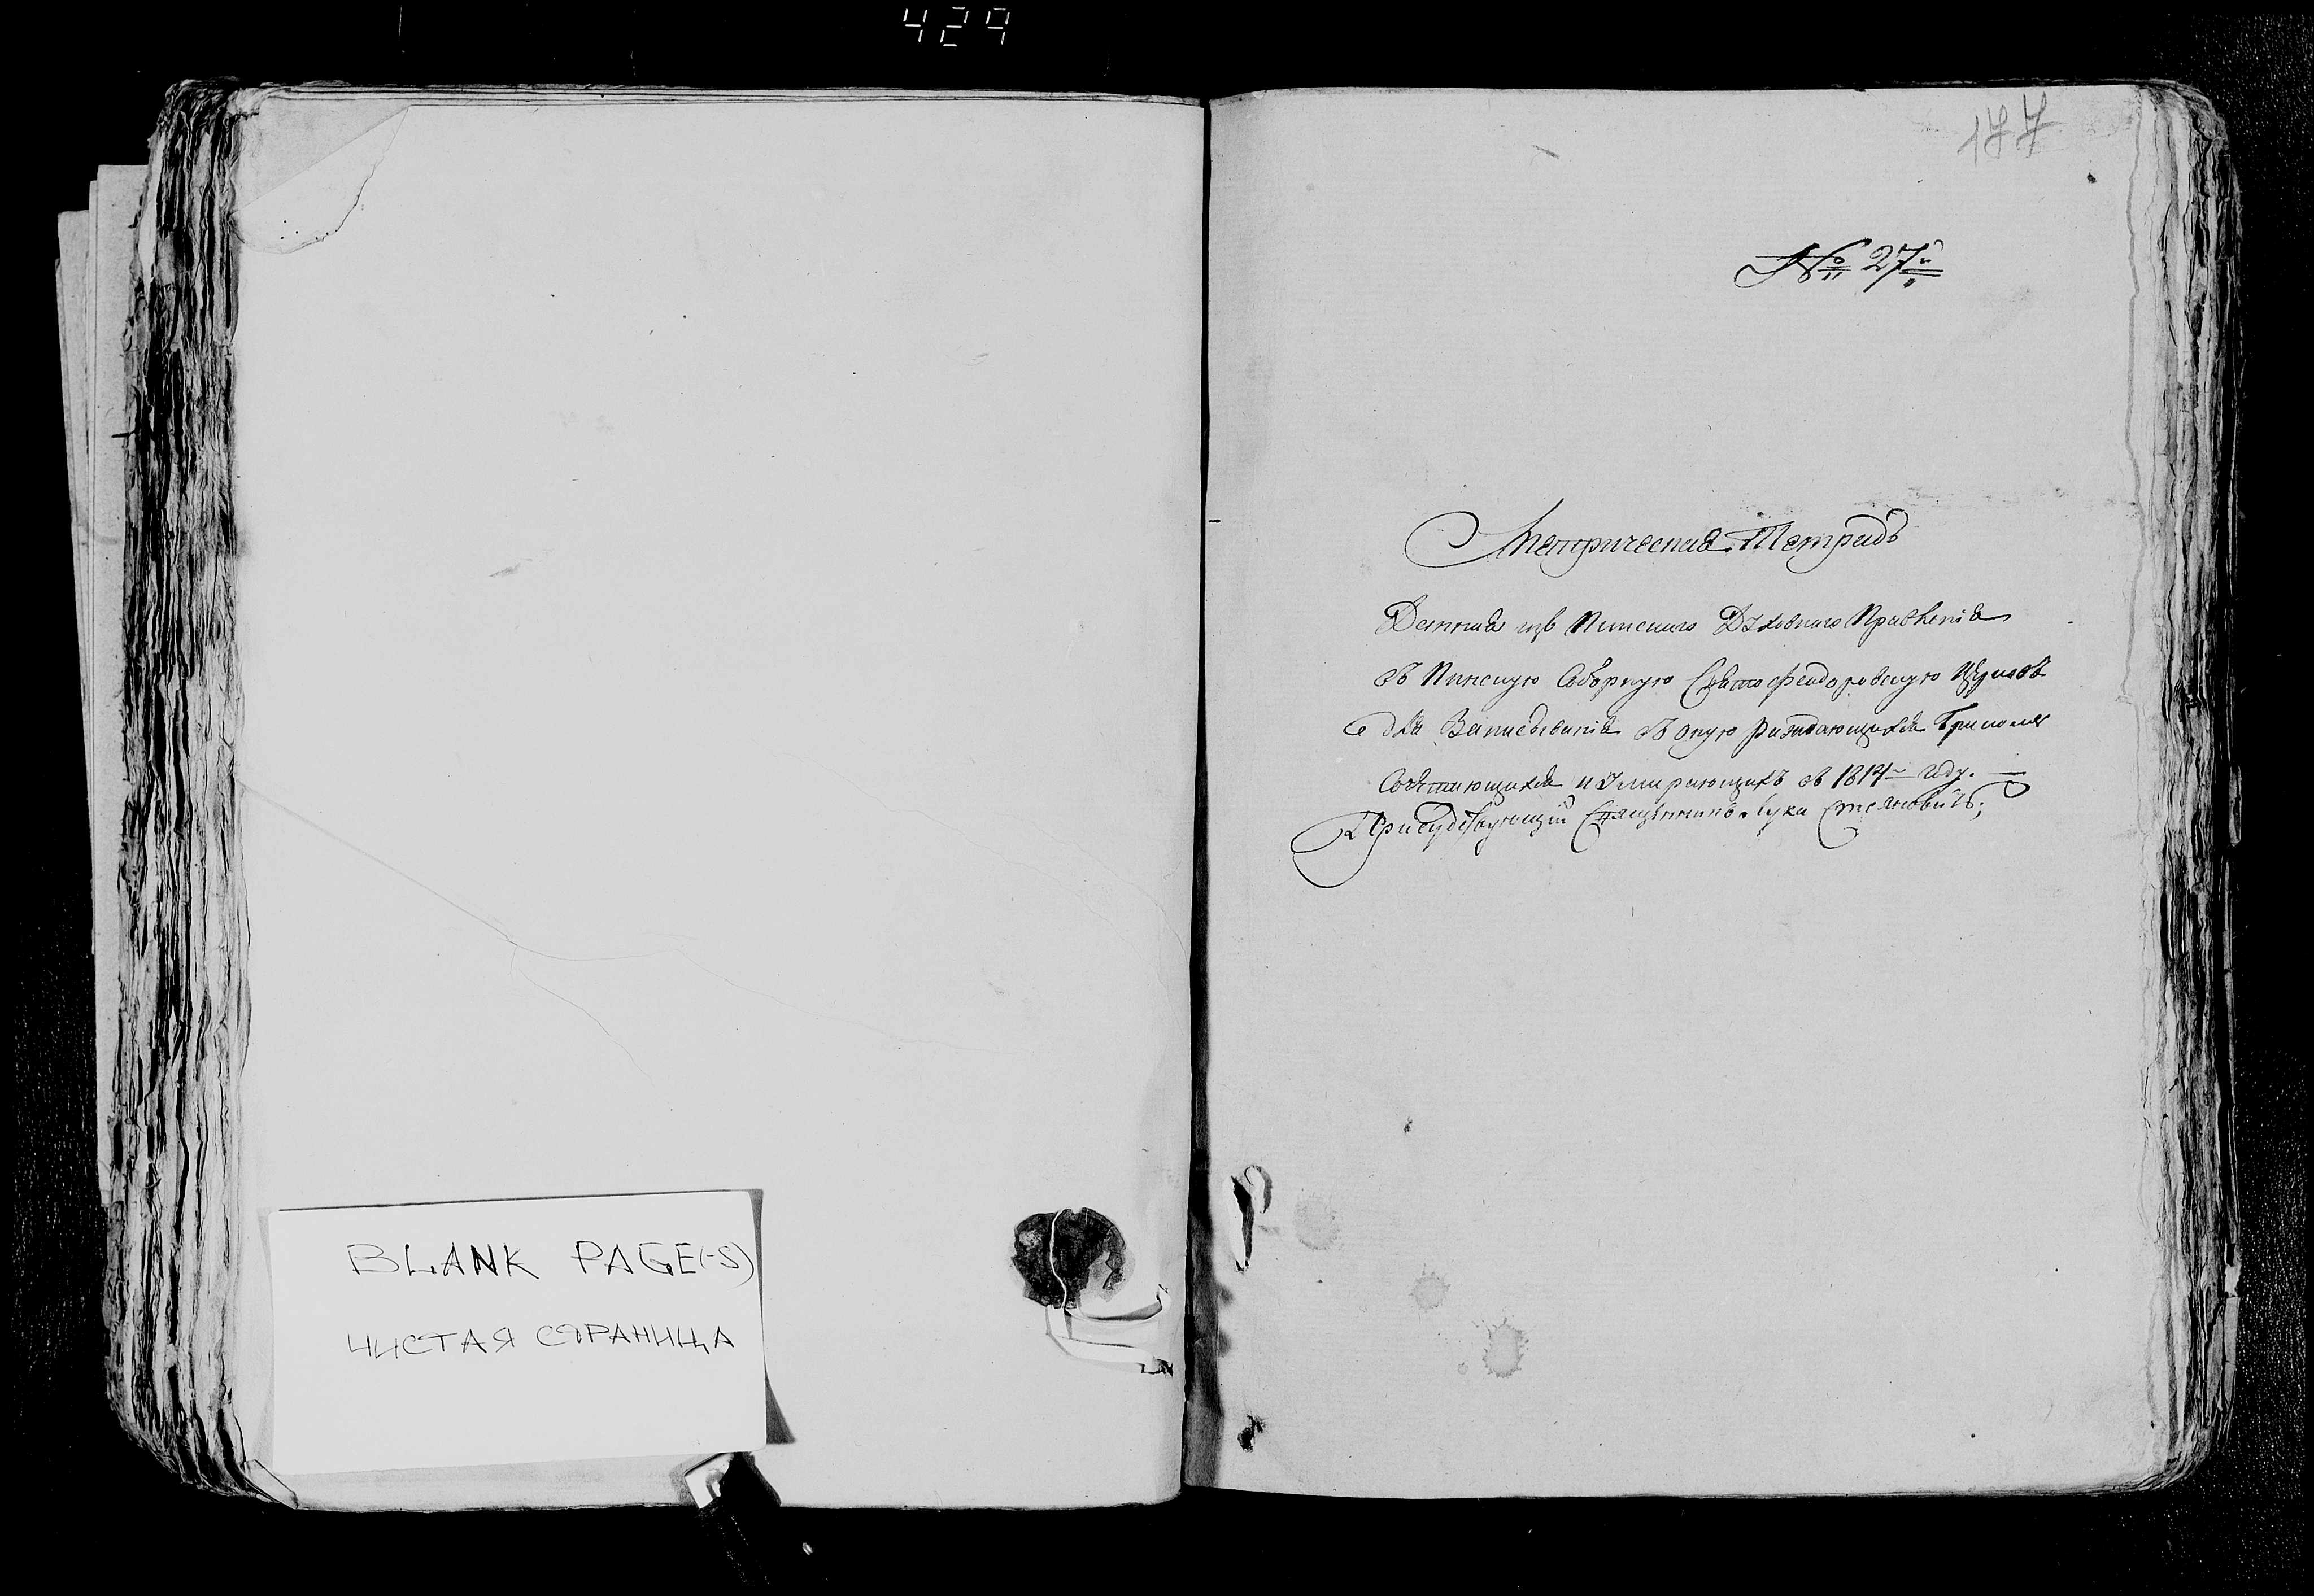 429
177
№ 27й
Метрическая Тетрадь
Данная изъ Пинскаго Духовнаго Правленія
въ Пинскую Соборную Святофеодоровскую Церковь
для Записыванія въ оную рождающихся бракомъ
Сочетающихся и Умирающихъ въ 1814м году.
Присудствующій Священникъ Лука
BLANK PAGE(-S)
ЧИСТАЯ СТРАНИЦА